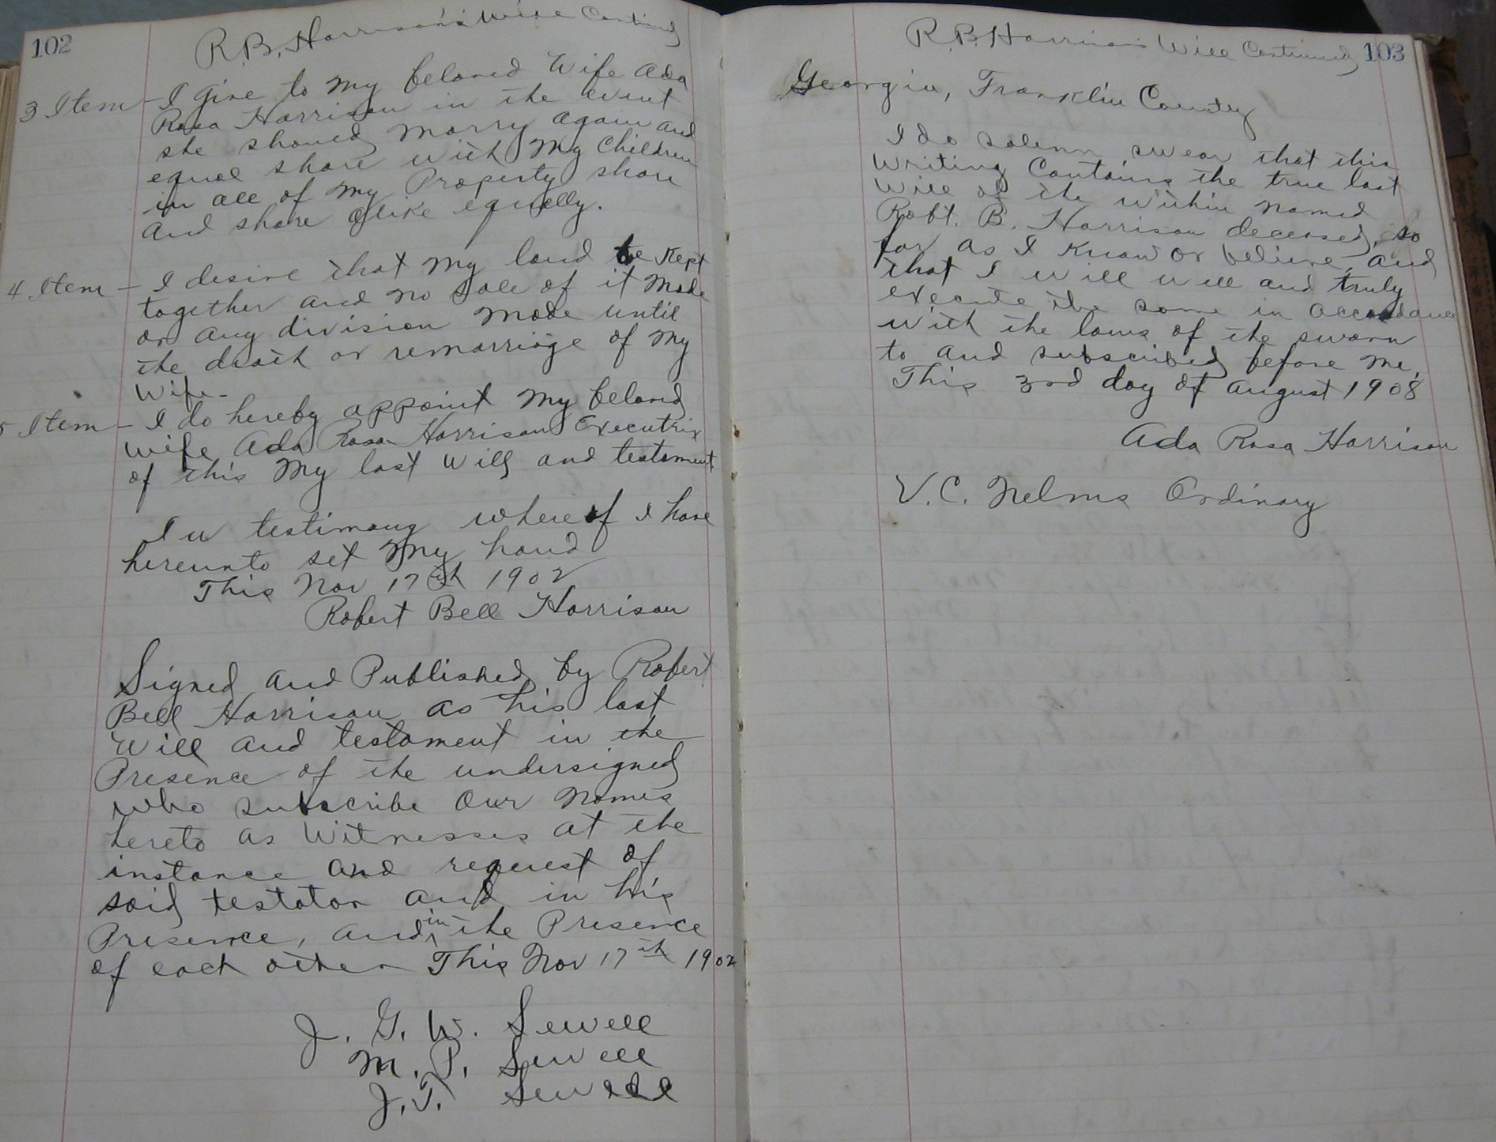 102
R.B. Harrison's Will Continued
3 Item - I give to my beloved Wife Ada
Rosa Harrison in the event
she should marry again and
equal share with my children
in all of my Property share
and share alike equally.
4. Item - I desire that my land be kept
together and no sale of it made
or any division made until
the death or remarriage of my
Wife.
5 Item - I do hereby appoint my beloved
wife Ada Rosa Harrison Executrix
of this my last will and testament
In testimony whereof I have
hereunto set my hand
This Nov 17th 1902
Robert Bell Harrison
Signed and Published by Robert
Bell Harrison as his last
Will and testament in the
Presence of the undersigned
who subscribe our names
hereto as Witnesses at the
instance and request of
said testator and in his
Presence, and in the Presence
of each other This Nov 17th 1902
J. G. W. Sewell
M. P. Sewell
J. T. Sewell
R.B. Harrison's Will Continued 103
Georgia, Franklin County
I do solemn swear that this
writing contains the true last
will of the within named
Robt. B. Harrison deceased, so
far as I know or believe, and
that I will well and truly
execute the same in accordance
with the laws of the sworn
to and subscribed before me,
This 3rd day of August 1908
Ada Rosa Harrison
V. C. Nelms Ordinary